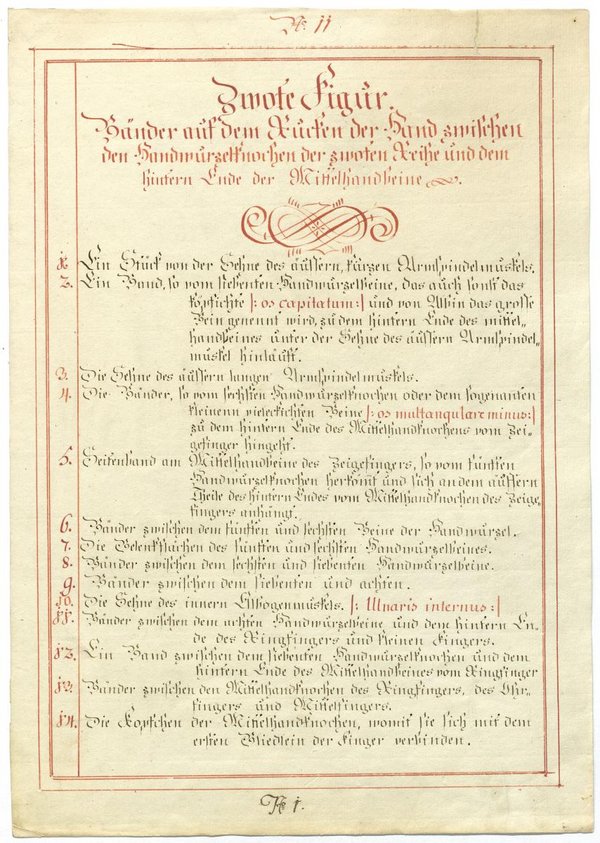 No. 11
Zwote Figur.
Bänder auf dem Rucken der Hand zwischen
den Handwurzelknochen der zwoten Reihe und dem
hintern Ende der Mittelhandbeine.
1. Ein Stück von der Sehne des äussern, kurzen Armspindelmuskels.
2. Ein Band, so vom siebenten Handwürzelbeine, das auch sonst das
köpfichte |: os capitatum :| und von Albin das grosse
Bein genennt wird, zu dem hintern Ende des mittel„
handbeines unter der Sehne des äussern Armspindel„
muskel hinläuft.
3. Die Sehne des äussern langen Armspindelmuskels.
4. Die Bänder, so vom sechsten Handwurzelknochen oder dem sogenanten
kleinenn vieleckichten Beine |: os multangulare minus :|
zu dem hintern Ende des Mittelhandknochens vom Zei„
gefinger hingeht.
5. Seitenband am Mittelhandbeine des Zeigefingers, so vom fünften
Handwurzelknochen herkömt und sich an dem äussern
Theile des hintern Endes vom Mittelhandknochen des Zeige„
fingers anhängt.
6. Bänder zwischen dem fünften und sechsten Beine der Handwürzel.
7. Die Gelenkflächen des fünften und sechsten Handwürzelbeines.
8. Bänder zwischen dem sechsten und siebenten Handwürzelbeine.
9. Bänder zwischen dem siebenten und achten.
10. Die Sehne des innern Elbogenmuskels. |: Ulnaris internus :|
11. Bänder zwischen dem achten Handwürzelbeine und dem hintern En„
de des Ringfingers und kleinen Fingers.
12. Ein Band zwischen dem siebenten Handwürzelknochen und dem
hintern Ende des Mittelhandbeines vom Ringfinger
13. Bänder zwischen den Mittelhandknochen des Ringfingers, des Ohr„
fingers und Mittelfingers.
14. Die Köpfchen der Mittelhandknochen, womit sie sich mit dem
ersten Gliedlein der Finger verbinden.
No 1.